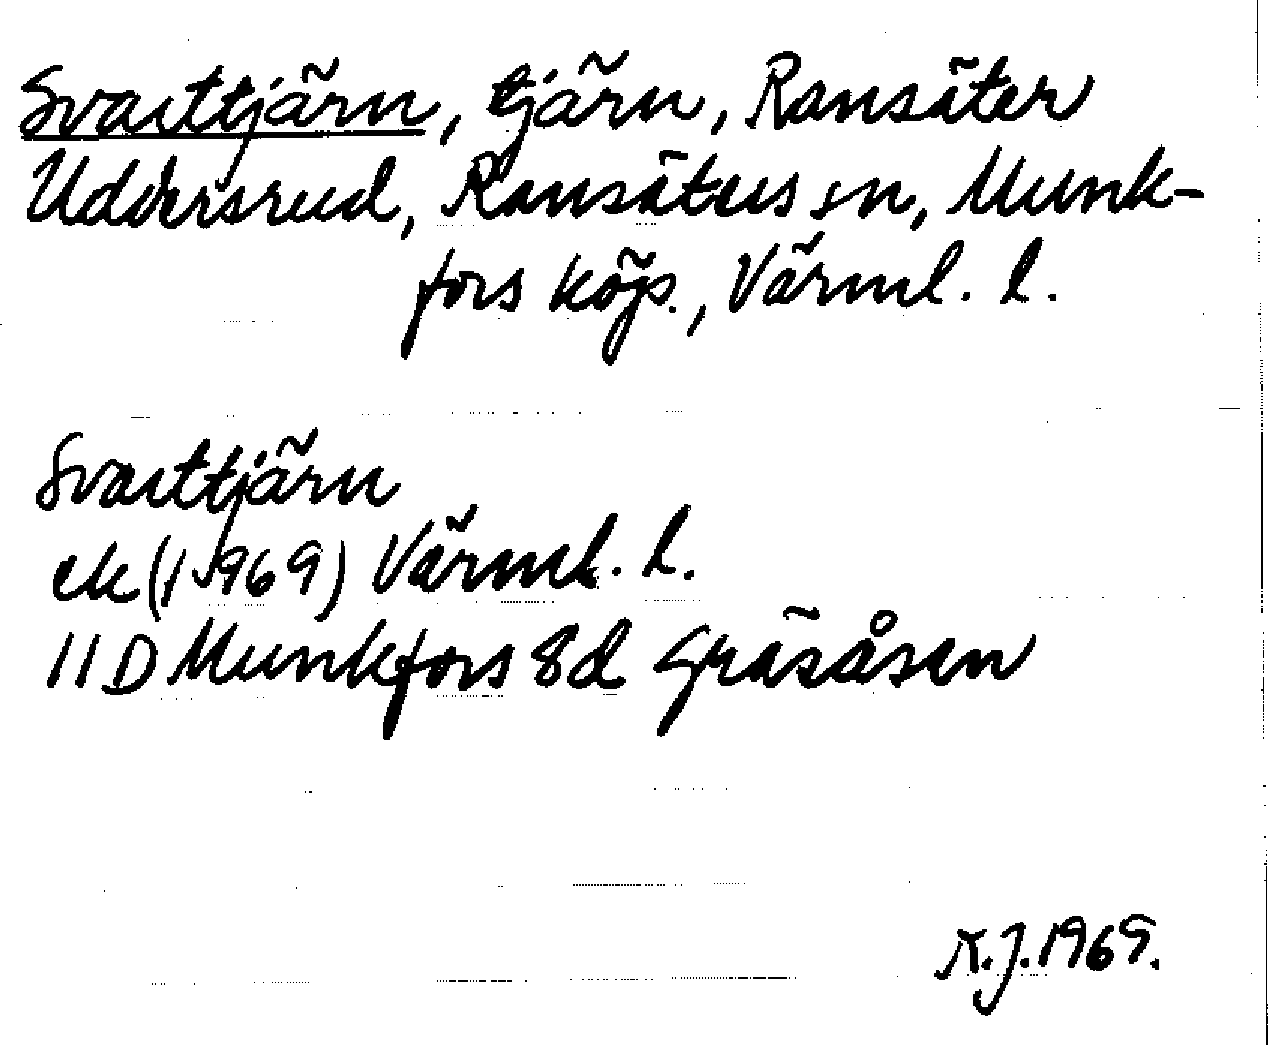 Svarttjärn, tjärn, Ransäter
Uddersrud, Ransäters sn, Munk-
fors köp., Värml. l.
Svarttjärn
ek (1969) Värml. l.
11D Munkfors 8d Gräsåsen
N.J. 1969.